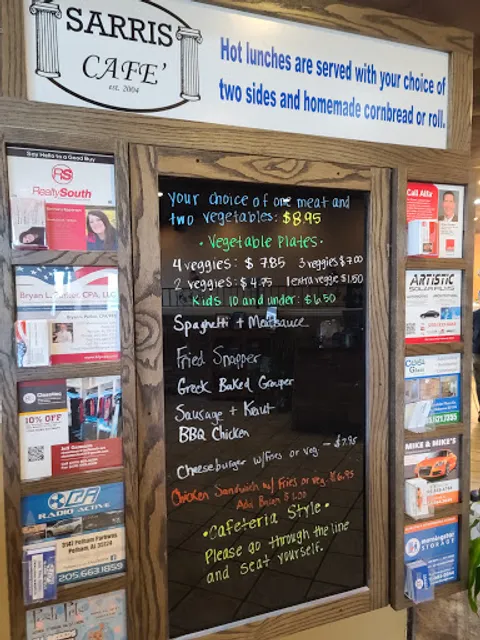 SARRIS
CAFE'
est. 2004
Hot lunches are served with your choice of
two sides and homemade cornbread or roll.
your choice of one meat and
two vegetables: $8.95
• Vegetable Plates •
4 veggies: $7.85 3 veggies $7.00
2 veggies: $4.75 1 extra veggie $1.50
Kids 10 and under: $6.50
Spaghetti + Meatsauce
Fried Snapper
Greek Baked Grouper
Sausage + Kraut
BBQ Chicken
Cheeseburger w/Fries or Veg. - $7.95
Chicken Sandwich w/ Fries or Veg. $6.95
• Cafeteria Style •
Please go through the line
and seat yourself.
Say Hello to a Good Buy
RS
RealtySouth
Bryan L. CPA, LLC
10% OFF
RADIO ACTIVE
Pelham Parkway
Pelham, Al 35124
205.663.1859
Call Alfa
ARTISTIC
SOLAR FILMS
MIKE & MIKE'S
morningstar
STORAGE